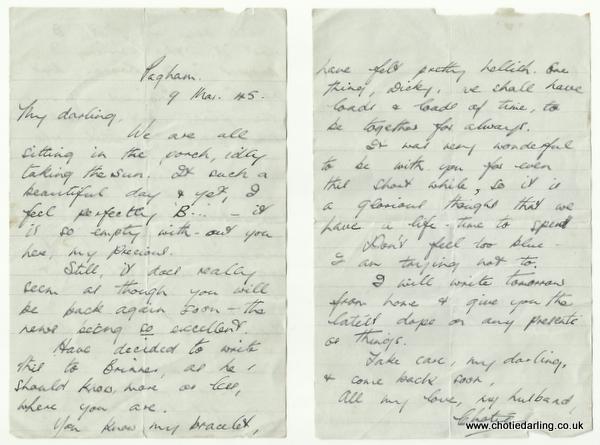 Pagham.
9 Mar. 45.
My darling,
We are all
sitting in the porch, idly
taking the sun. It such a
beautiful day & yet, I
feel perfectly 'B... – it
is so empty with-out you
here, my precious.
Still, it does really
seem as though you will
be back again soon – the
news being so excellent.
Have decided to write
this to Brunner, as he,
should know, more or less,
where you are.
You know my bracelet,
have felt pretty hellish. One
thing, Dicky, we shall have
loads & loads of time, to
be together for always.
It was very wonderful
to be with you for even
that short while, so it is
a glorious thought that we
have a life-time to spend
Don't feel too blue –
I am trying not to.
I will write tomorrow
from home & give you the
latest dope on any presents
or things.
Take care, my darling,
& come back soon,
All my love, my husband,
Chotie
www.chotiedarling.co.uk